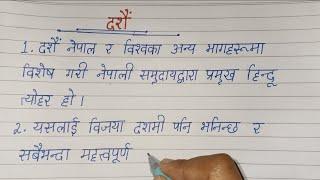 दशैं
1. दशैं नेपाल र विश्वका अन्य भागहरूमा
विशेष गरी नेपाली समुदायद्वारा प्रमुख हिन्दू
त्योहर हो ।
2. यसलाई विजया दशमी पनि भनिन्छ र
सबैभन्दा महत्त्वपूर्ण